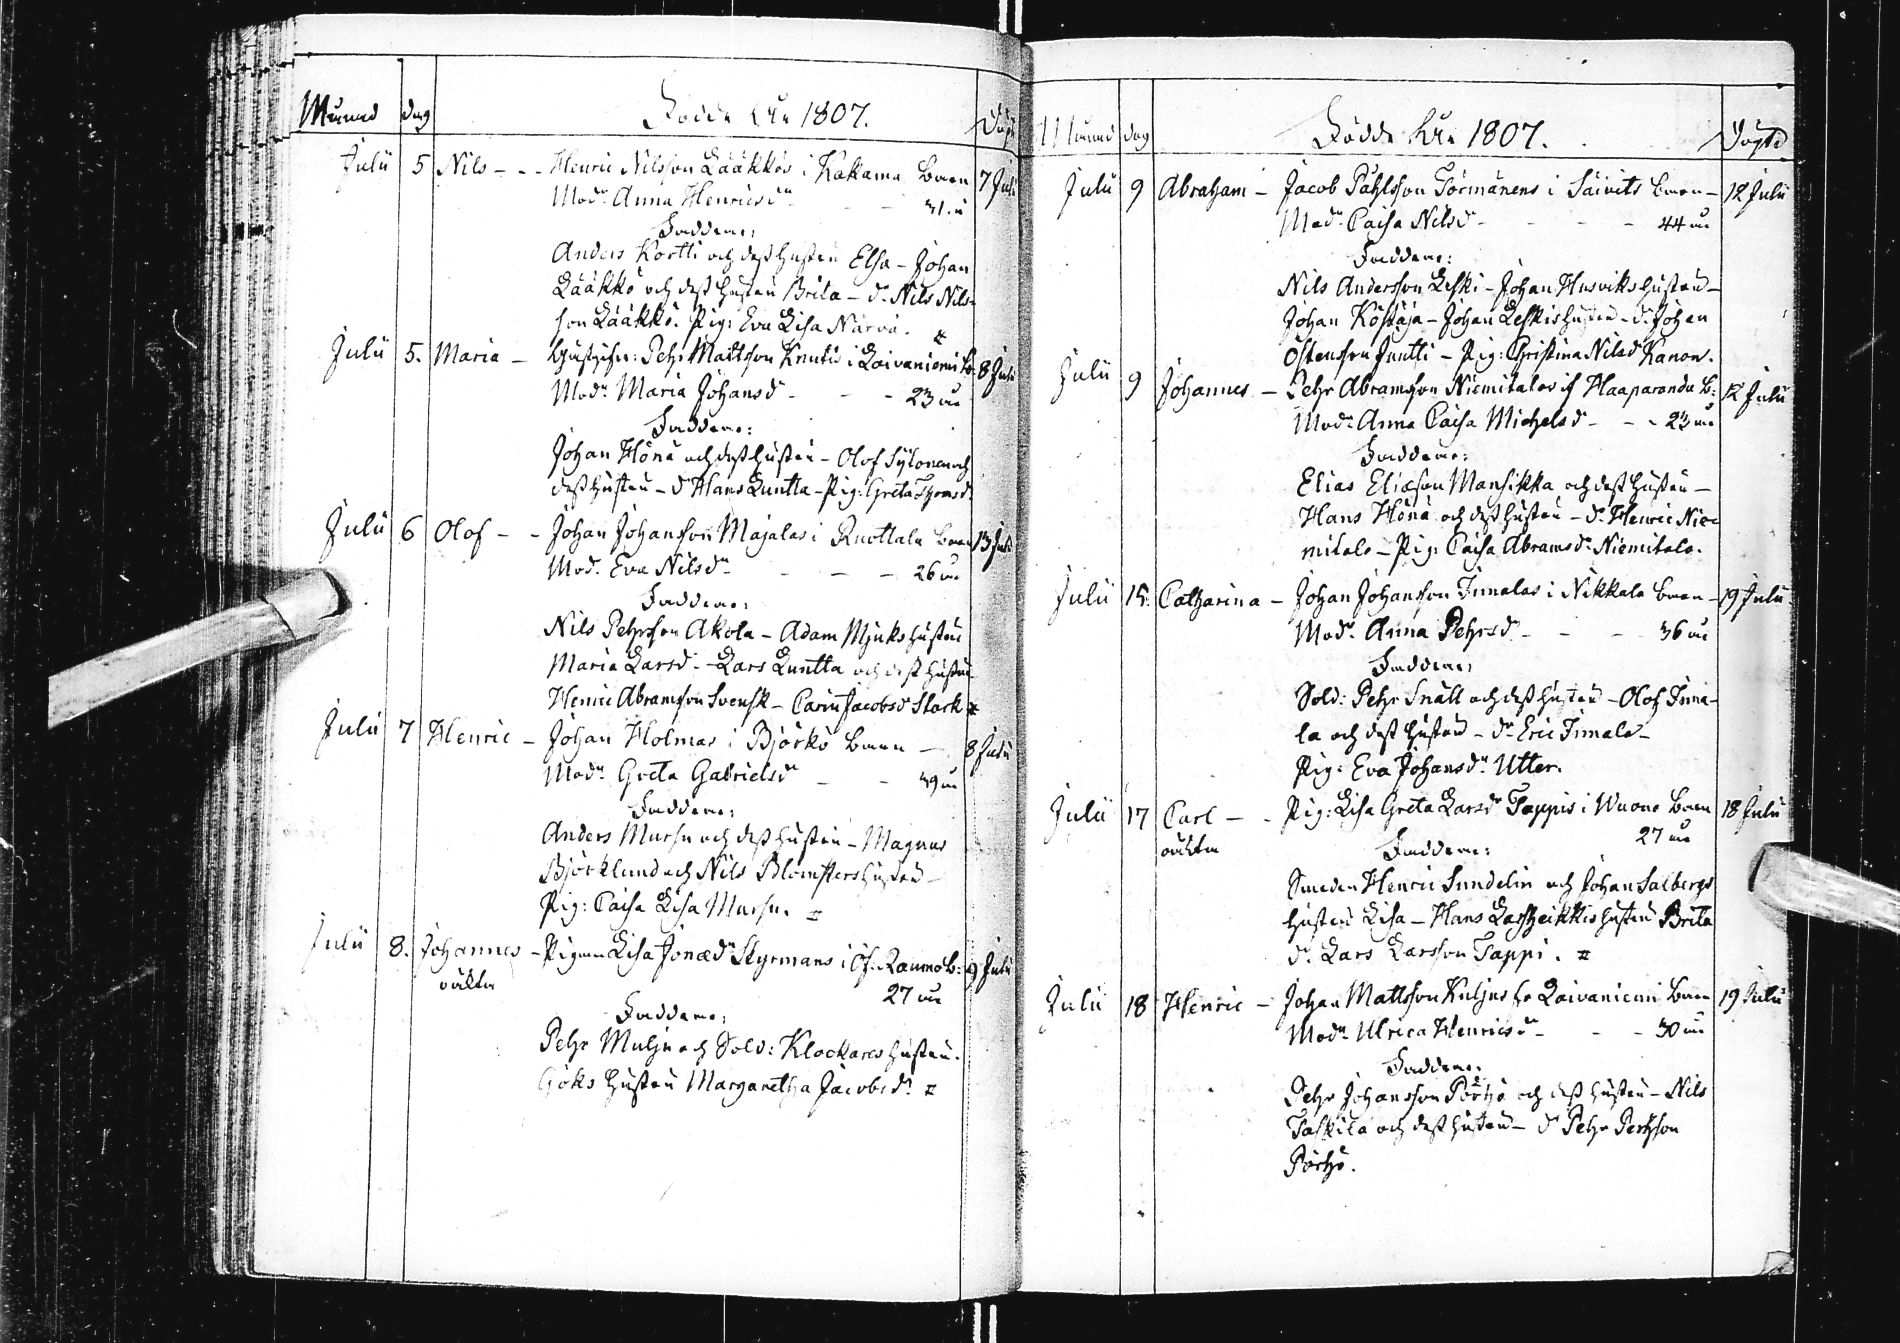 Månad dag Födde År 1807. Döpt
Julii 5 Nils - - - Henric Nilsson Lääkkös i Kakama barn 7 Julii
Modr Anna Henricsdr - - 31. år
Faddrar:
Anders Kortti och dess hustru Elsa - Johan
Lääkkö och dess hustru Brita - dr. Nils Nils-
son Lääkkö. Pig: Eva Lisa Narva.
Julii 5. Maria - Pehr Mattsson Knuts i Laivaniemi b: 8 Julii
Modr Maria Johansdr - - - 23 år
Faddrar:
Johan Hönä och dess hustru - Olof Sÿlonen och
dess hustru - dr Hans Luntta - Pig: Greta Thomsdr
Julii 6 Olof - - Johan Johansson Majalas i Ruottala barn 13 Julii
Modr Eva Nilsdr - - - 26 år
Faddrar:
Nils Pehrsson Akola - Adam Mjuks hustru
Maria Larsdr - Lars Luntta och dess hustru
Henric Abramsson Svensk - Carin Jacobsdr Stark
Julii 7 Henric - Johan Holmas i Björkö barn - 8 Julii
Modr Greta Gabrielsdr - - 39 år
Faddrar:
Anders Mursu och dess hustru - Magnus
Björklund och Nils Blomsters hustru
Pig: Caisa Lisa Mursu.
Julii 8. Johannes - Pigan Lisa Jonædr Styrmans i Öf: Raumo b: 9 Julii
oäkta 27 år
Faddrar:
Pehr Mulju och Sold: Klockares hustru.
Göks hustru Margaretha Jacobsdr
Månad dag Födde År 1807. Döpte
Julii 9 Abraham - Jacob Påhlsson Törmänens i Säivits barn - 12 Julii
Modr Caisa Nilsdr - - - - 44 år
Faddrar:
Nils Andersson Leski - Johan Husviks hustru -
Johan Köstäjä - Johan Leskis hustru - dr. Johan
Östensson Juntti - Pig: Christina Nilsdr Kanon.
Julii 9 Johannes - Pehr Abramsson Niemitalos if Haaparanda b: 12 Julii
Modr Anna Caisa Michelsdr - - - 23 år
Faddrar:
Elias Eliæson Mansikka och dess hustru -
Hans Hönä och dess hustru - dr Henric Nie-
mitalo - Pig: Caisa Abramsdr Niemitalo.
Julii 15. Catharina - Johan Johansson Innalas i Nikkala barn - 19 Julii
Modr Anna Pehrsdr - - - - 36 år
Faddrar:
Sold: Pehr Snäll och dess hustru - Olof Inna-
la och dess hustru - dr Eric Innala -
Pig: Eva Johansdr Utter.
Julii 17 Carl - - Pig: Lisa Greta Larsdr Tappis i Wuono barn 18 Julii
oäkta 27 år
Faddrar:
Smeden Henric Sundelin och Johan Salbergs
hustru Lisa - Hans hustru Brita
dr. Lars Larsson Tappi.
Julii 18 Henric - Johan Mattsson Kuljus fr Laivaniemi barn 19 Julii
Modr Ulrica Henricsdr - - - 30 år
Faddrar:
Pehr Johansson Pörhö och dess hustru - Nils
Taskila och dess hustru - dr Pehr Pehrsson
Pörhö.